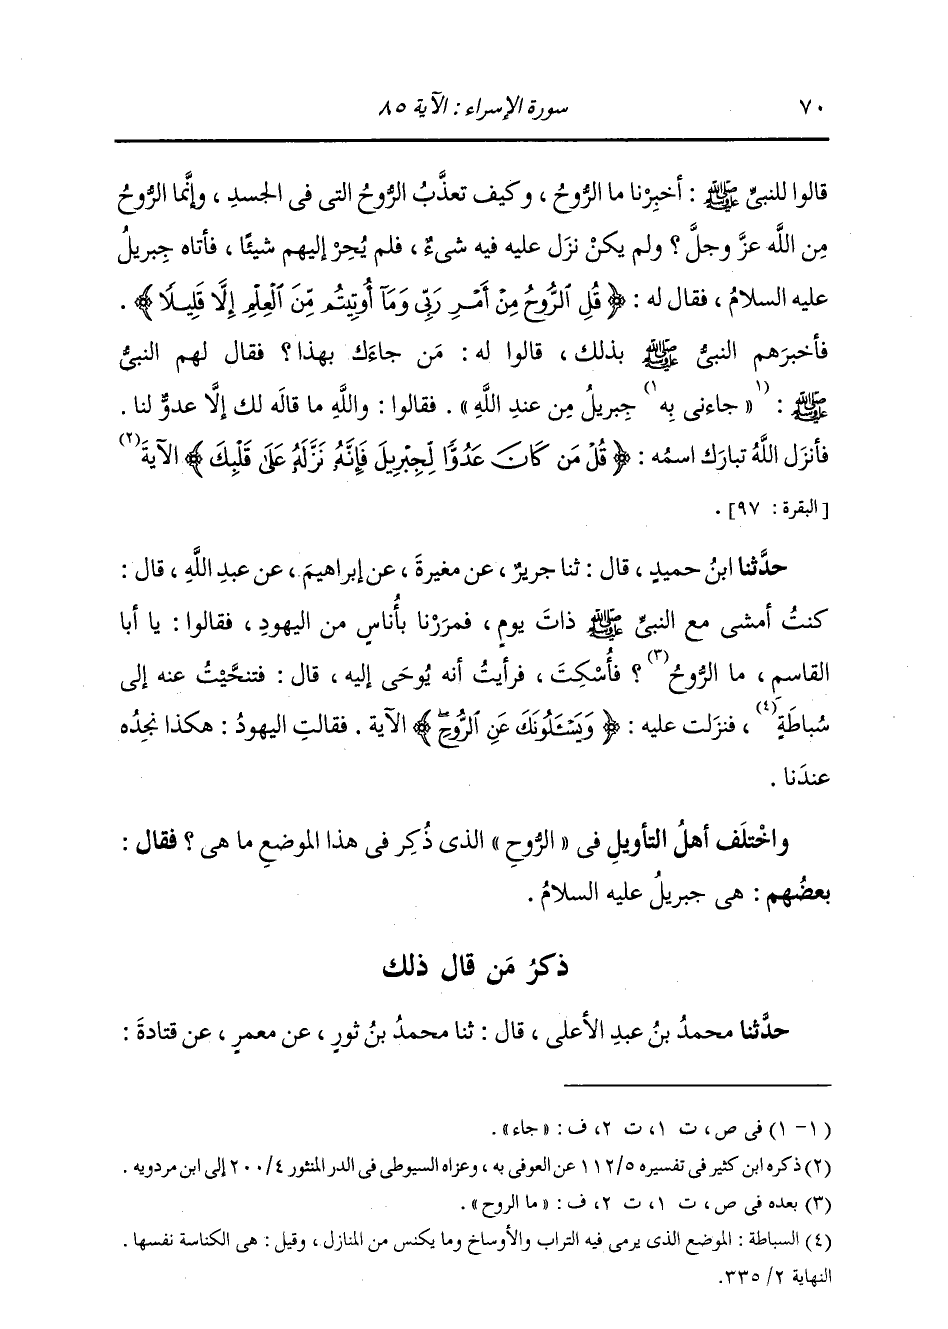 ٧٠ سورة الإسراء : الآية ٨٥
قالوا للنبىِّ ﷺ : أخبِرْنا ما الرُّوحُ ، وكيف تعذَّبُ الرُّوحُ التى فى الجسدِ ، وإنَّما الرُّوحُ
مِن اللَّه عزَّ وجلَّ ؟ ولم يكنْ نزَل عليه فيه شىءٌ ، فلم يُحِرْ إليهم شيئًا ، فأتاه جِبريلُ
عليه السلامُ ، فقال له : ﴿ قُلِ ٱلرُّوحُ مِنْ أَمْـرِ رَبِّى وَمَآ أُوتِيتُم مِّنَ ٱلْعِلْمِ إِلَّا قَلِيـلًا ﴾ .
فأخبرَهم النبىُّ ﷺ بذلك ، قالوا له : مَن جاءَك بهذا ؟ فقال لهم النبىُّ
ﷺ : (١« جاءنى بِه١) جِبريلُ مِن عندِ اللَّهِ » . فقالوا : واللَّهِ ما قالَه لك إلَّا عدوٌّ لنا .
فأنزَل اللَّهُ تبارَك اسمُه : ﴿ قُلْ مَن كَانَ عَدُوًّا لِّجِبْرِيلَ فَإِنَّهُۥ نَزَّلَهُۥ عَلَىٰ قَلْبِكَ ﴾ الآيةَ(٢)
[ البقرة : ٩٧] .
حدَّثنا ابنُ حميدٍ ، قال : ثنا جريرٌ ، عن مغيرةَ ، عن إبراهيمَ ، عن عبدِ اللَّهِ ، قال :
كنتُ أمشى مع النبىِّ ﷺ ذاتَ يومٍ ، فمرَرْنا بأُناسٍ من اليهودِ ، فقالوا : يا أبا
القاسمِ ، ما الرُّوحُ(٣) ؟ فأُسْكِتَ ، فرأيتُ أنه يُوحَى إليه ، قال : فتنحَّيْتُ عنه إلى
سُباطَةٍ(٤) ، فنزَلت عليه : ﴿ وَيَسْـَٔلُونَكَ عَنِ ٱلرُّوحِۖ ﴾ الآية . فقالتِ اليهودُ : هكذا نجدُه
عندَنا .
واخْتلَف أهلُ التأويلِ فى « الرُّوحِ » الذى ذُكِر فى هذا الموضعِ ما هى ؟ فقال :
بعضُهم : هى جبريلُ عليه السلامُ .
ذكرُ مَن قال ذلك
حدَّثنا محمدُ بنُ عبدِ الأعلى ، قال : ثنا محمدُ بنُ ثورٍ ، عن معمرٍ ، عن قتادةَ :
(١ - ١) فى ص ، ت ١ ، ت ٢ ، ف : « جاء » .
(٢) ذكره ابن كثير فى تفسيره ١١٢/٥ عن العوفى به ، وعزاه السيوطى فى الدر المنثور ٢٠٠/٤ إلى ابن مردويه .
(٣) بعده فى ص ، ت ١ ، ت ٢ ، ف : « ما الروح » .
(٤) السباطة : الموضع الذى يرمى فيه التراب والأوساخ وما يكنس من المنازل ، وقيل : هى الكناسة نفسها .
النهاية ٢/ ٣٣٥.